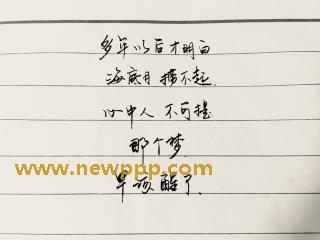 多年以后才明白
海底月 捞不起.
心中人 不可提
那个梦.
www.newppp.com
早该醒了.